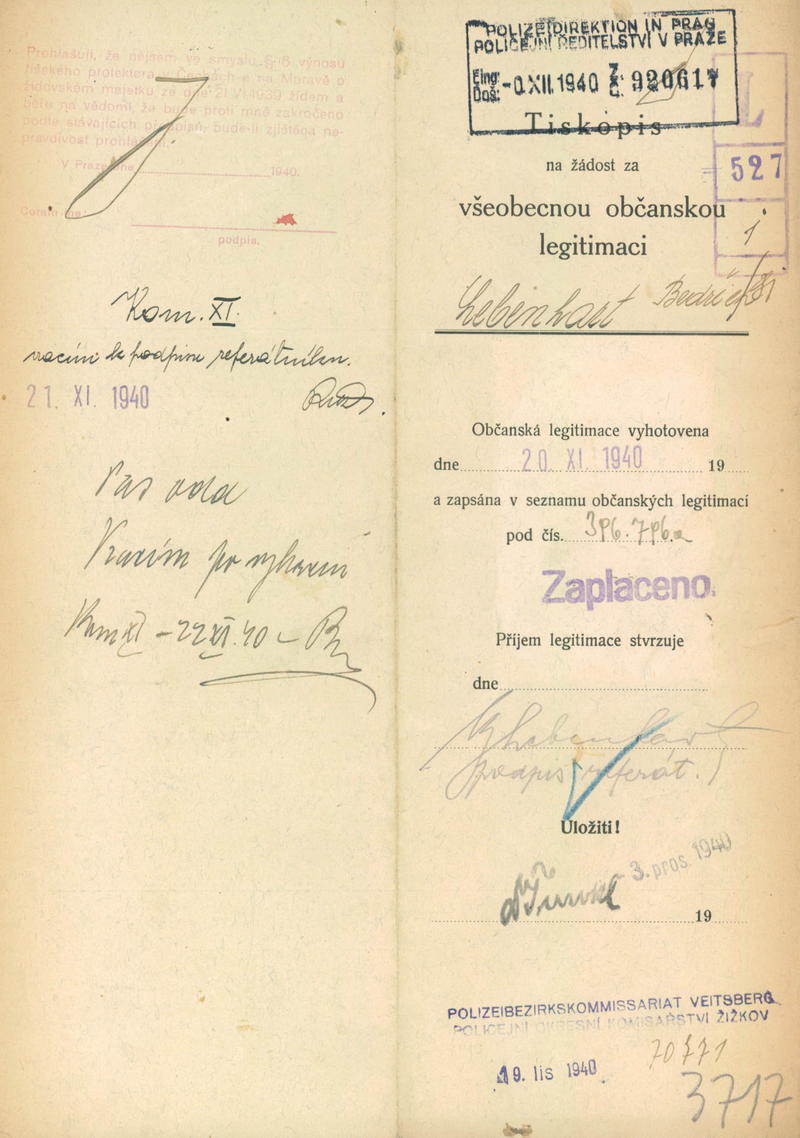 Prohlašuji, že nejsem ve smyslu § 6 výnosu
říšského protektora v Čechách a na Moravě o
židovském majetku ze dne 21.VI.1939 židem a
beru na vědomí, že bude proti mně zakročeno
podle stávajících předpisů, bude-li zjištěna ne-
pravdivost prohlášení.
V Praze dne 1940.
podpis.
J
Kom. XI.
vracím k podpisu
21. XI. 1940
Pas odd
Vracím po
Kom XI – 22 XI. 40 –
POLIZEIDIREKTION IN PRAG
POLICEJNÍ ŘEDITELSTVÍ V PRAZE
Eing.
Doš.
XII. 1940
Z.
Č.
920617
Tiskopis
na žádost za
527
všeobecnou občanskou
1
legitimaci
Lebenhart Bedřich
Občanská legitimace vyhotovena
dne 20. XI. 1940 19
a zapsána v seznamu občanských legitimací
pod čís. 396.796
Zaplaceno
Příjem legitimace stvrzuje
dne
Lebenhart
podpis referát.
Uložiti!
3. pros. 1940
19
POLIZEIBEZIRKSKOMMISSARIAT VEITSBERG
POLICEJNÍ OKRESNÍ KOMISAŘSTVÍ ŽIŽKOV
19. lis 1940
70771
3717